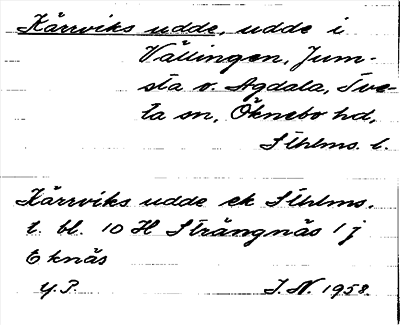 Kärrviks udde, udde i
Vällingen, Jum-
sta o. Agdala, Tve-
ta sn, Öknebo hd,
Sthlms. l.
Kärrviks udde ek Sthlms.
t. bl. 10 H Strängnäs 1 j
Eknäs
Y. P. I. N. 1958.